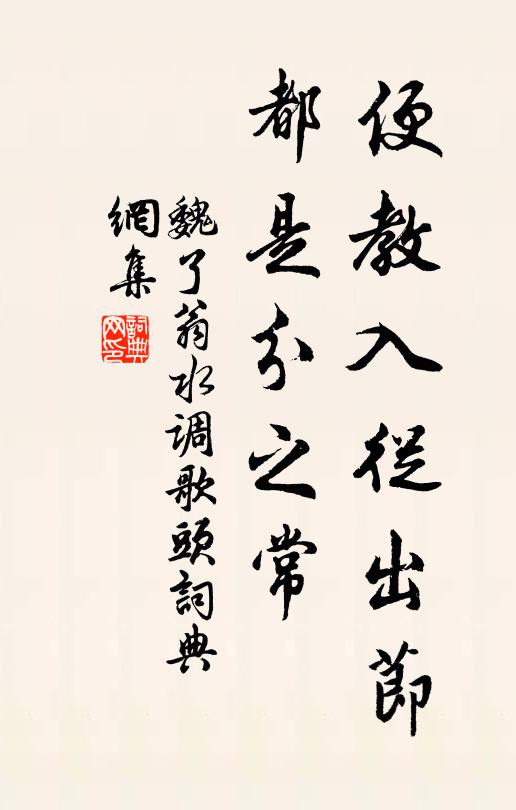 便教入從出節
都是分之常
魏了翁水调歌頭詞典
網集
詞典網印